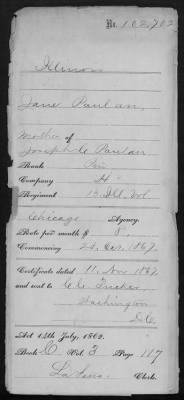 No. 102,702
Illinois
Jane Paulan,
Mother of
Joseph C Paulan
Rank Pri
Company "H"
Regiment 13 Ill Vol
Chicago Agency.
Rate per month $ 8.
Commencing 1867.
Certificate dated 11. Nov 1867
and sent to C. C. Tucker
Washington
D.C.
Act 14th July, 1862.
Book C Vol. 3 Page 117
Clerk.